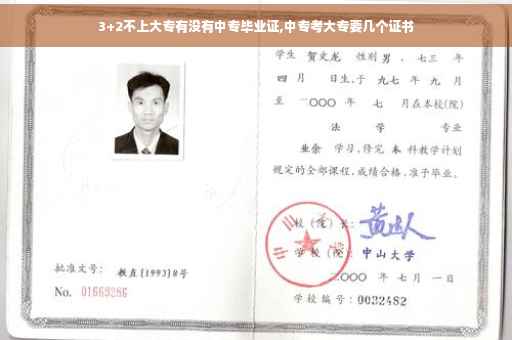 3+2不上大专有没有中专毕业证,中专考大专要几个证书
学生 贺文龙 性别 男 ,七三 年
四 月 日生,于 九七 年 九 月
至 二〇〇〇 年 七 月在本校(院)
法 学 专业
业余 学习,修完 本 科教学计划
规定的全部课程,成绩合格,准予毕业。
校(院)长:
学校(院): 中山大学
二〇〇〇 年 七 月 一 日
学校编号: 0032482
批准文号: 教直[1993]8号
No. 01669286